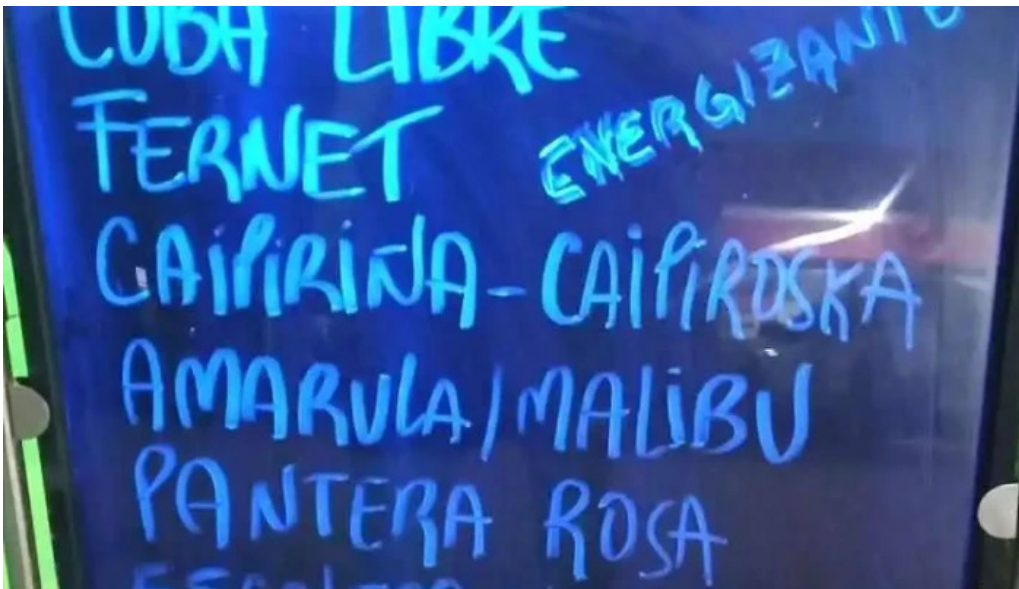 CUBA LIBRE
ENERGIZANTE
FERNET
CAIPIRIÑA - CAIPIROSKA
AMARULA / MALIBU
PANTERA ROSA